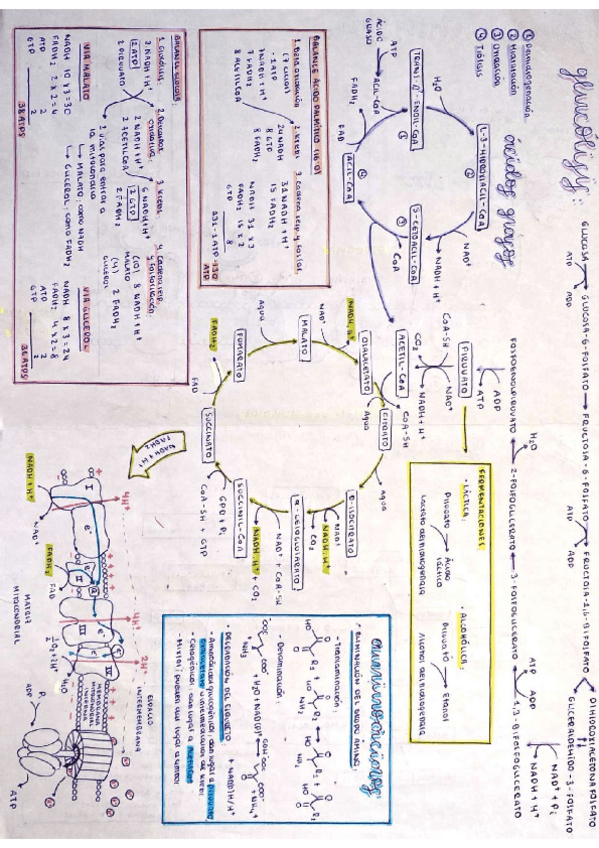 glucólisis:
GLUCOSA
ATP
ADP
GLUCOSA-6-FOSFATO
FRUCTOSA-6-FOSFATO
ATP
ADP
FRUCTOSA-1,6-BIFOSFATO
DIHIDROXIACETONA FOSFATO
GLICERALDEHIDO-3-FOSFATO
NAD⁺ + Pi
NADH + H⁺
1,3-BIFOSFOGLICERATO
ADP
ATP
3-FOSFOGLICERATO
2-FOSFOGLICERATO
H₂O
FOSFOENOLPIRUVATO
ADP
ATP
PIRUVATO
NAD⁺
CoA-SH
NADH + H⁺
CO₂
ACETIL-CoA
ácidos grasos
① Deshidrogenación
② Hidratación
③ Oxidación
④ Tiólisis
ÁCIDO GRASO
ATP
ACIL-CoA
ACIL-CoA
FAD
FADH₂
TRANS-Δ²-ENOIL-CoA
H₂O
L-3-HIDROXIACIL-CoA
NAD⁺
NADH + H⁺
3-CETOACIL-CoA
CoA
FERMENTACIONES:
· LÁCTICA:
Piruvato → Ácido láctico
Lactato deshidrogenasa
· ALCOHÓLICA:
Piruvato → Etanol
Alcohol deshidrogenasa
CoA-SH
Agua
CITRATO
Agua
D-ISOCITRATO
NAD⁺
NADH+H⁺
CO₂
α-CETOGLUTARATO
NAD⁺ + CoA-SH
NADH+H⁺ + CO₂
SUCCINIL-CoA
GDP + Pi
CoA-SH + GTP
SUCCINATO
FAD
FADH₂
FUMARATO
Agua
MALATO
NAD⁺
NADH+H⁺
OXALACETATO
NADH+H⁺
FADH₂
BALANCE ÁCIDO PALMÍTICO (16:0)
1. Beta oxidación
(7 ciclos)
-1 ATP
7 NADH + H⁺
7 FADH₂
8 Acetil CoA
2. Krebs
24 NADH
8 GTP
8 FADH₂
31 NADH + H⁺
15 FADH₂
NADH 31 x 3
FADH₂ 15 x 2
GTP 8
131 - 1 ATP = 130 ATP
BALANCE GLUCOSA:
1. Glucólisis:
2 NADH + H⁺
2 ATP
2 PIRUVATO
2 NADH + H⁺
2 ACETIL CoA
3. Krebs:
6 NADH + H⁺
2 GTP
2 FADH₂
(10) 8 NADH + H⁺
MALATO
(4) 2 FADH₂
GLICEROL
2 vías para entrar a la mitocondria
→ MALATO: como NADH
→ GLICEROL: como FADH₂
VIA MALATO
NADH 10 x 3 = 30
FADH₂ 2 x 2 = 4
ATP 2
GTP 2
38 ATPS
VIA GLICEROL
NADH 8 x 3 = 24
FADH₂ 4 x 2 = 8
ATP 2
GTP 2
36 ATPS
aminoácidos
* ELIMINACIÓN DEL GRUPO AMINO:
- Transaminación:
- Desaminación:
+ H₂O + NAD(P)⁺
+ NH₄⁺
+ NAD(P)H/H⁺
* DEGRADACIÓN DEL ESQUELETO
4H⁺
4H⁺
2H⁺
I
II
III
IV
Q
e⁻
NADH+H⁺
NAD⁺
FADH₂
FAD
½O₂ + 2H⁺
H₂O
MEMBRANA MITOCONDRIAL INTERNA
ESPACIO INTERMEMBRANA
MATRIZ MITOCONDRIAL
ADP
Pi
ATP